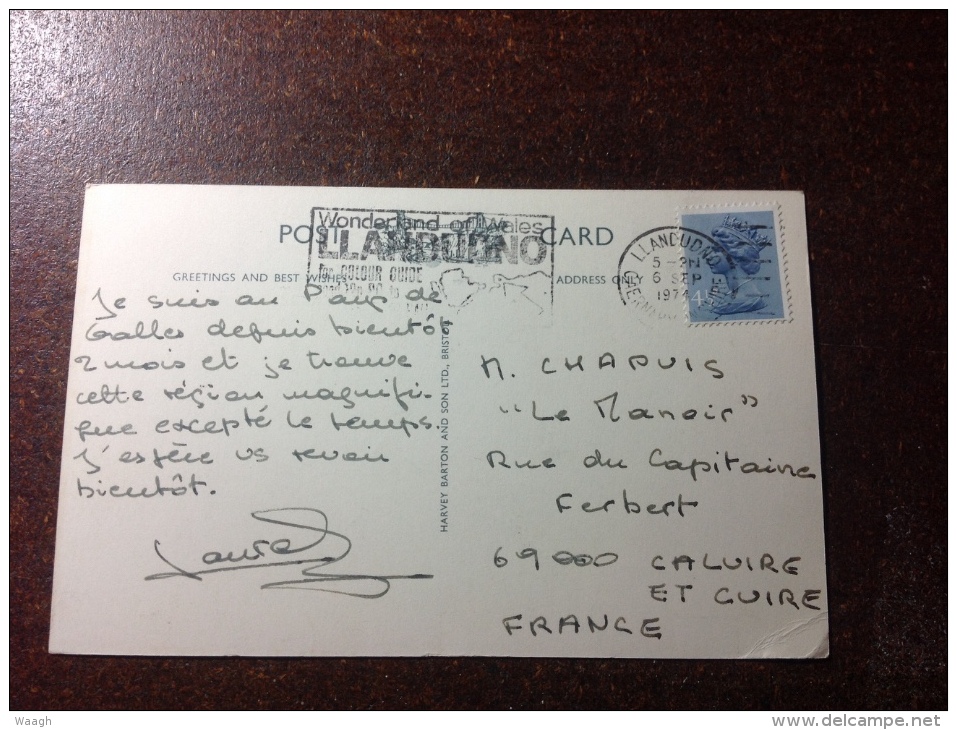 POST CARD
Wonderland of Wales
LLANDUDNO
for COLOUR GUIDE
GREETINGS AND BEST WISHES
ADDRESS ONLY
LLANDUDNO
5 - PM
6 SEP
1974
Je suis au Pays de
Galles depuis bientôt
2 mois et je trouve
cette région magnifi-
que excepté le temps.
J'espère vs revoir
bientôt.
HARVEY BARTON AND SON LTD., BRISTOL
M. CHAPUIS
"Le Manoir"
Rue du Capitaine
Ferbert
69000 CALUIRE
ET CUIRE
FRANCE
Waagh
delcampe.net